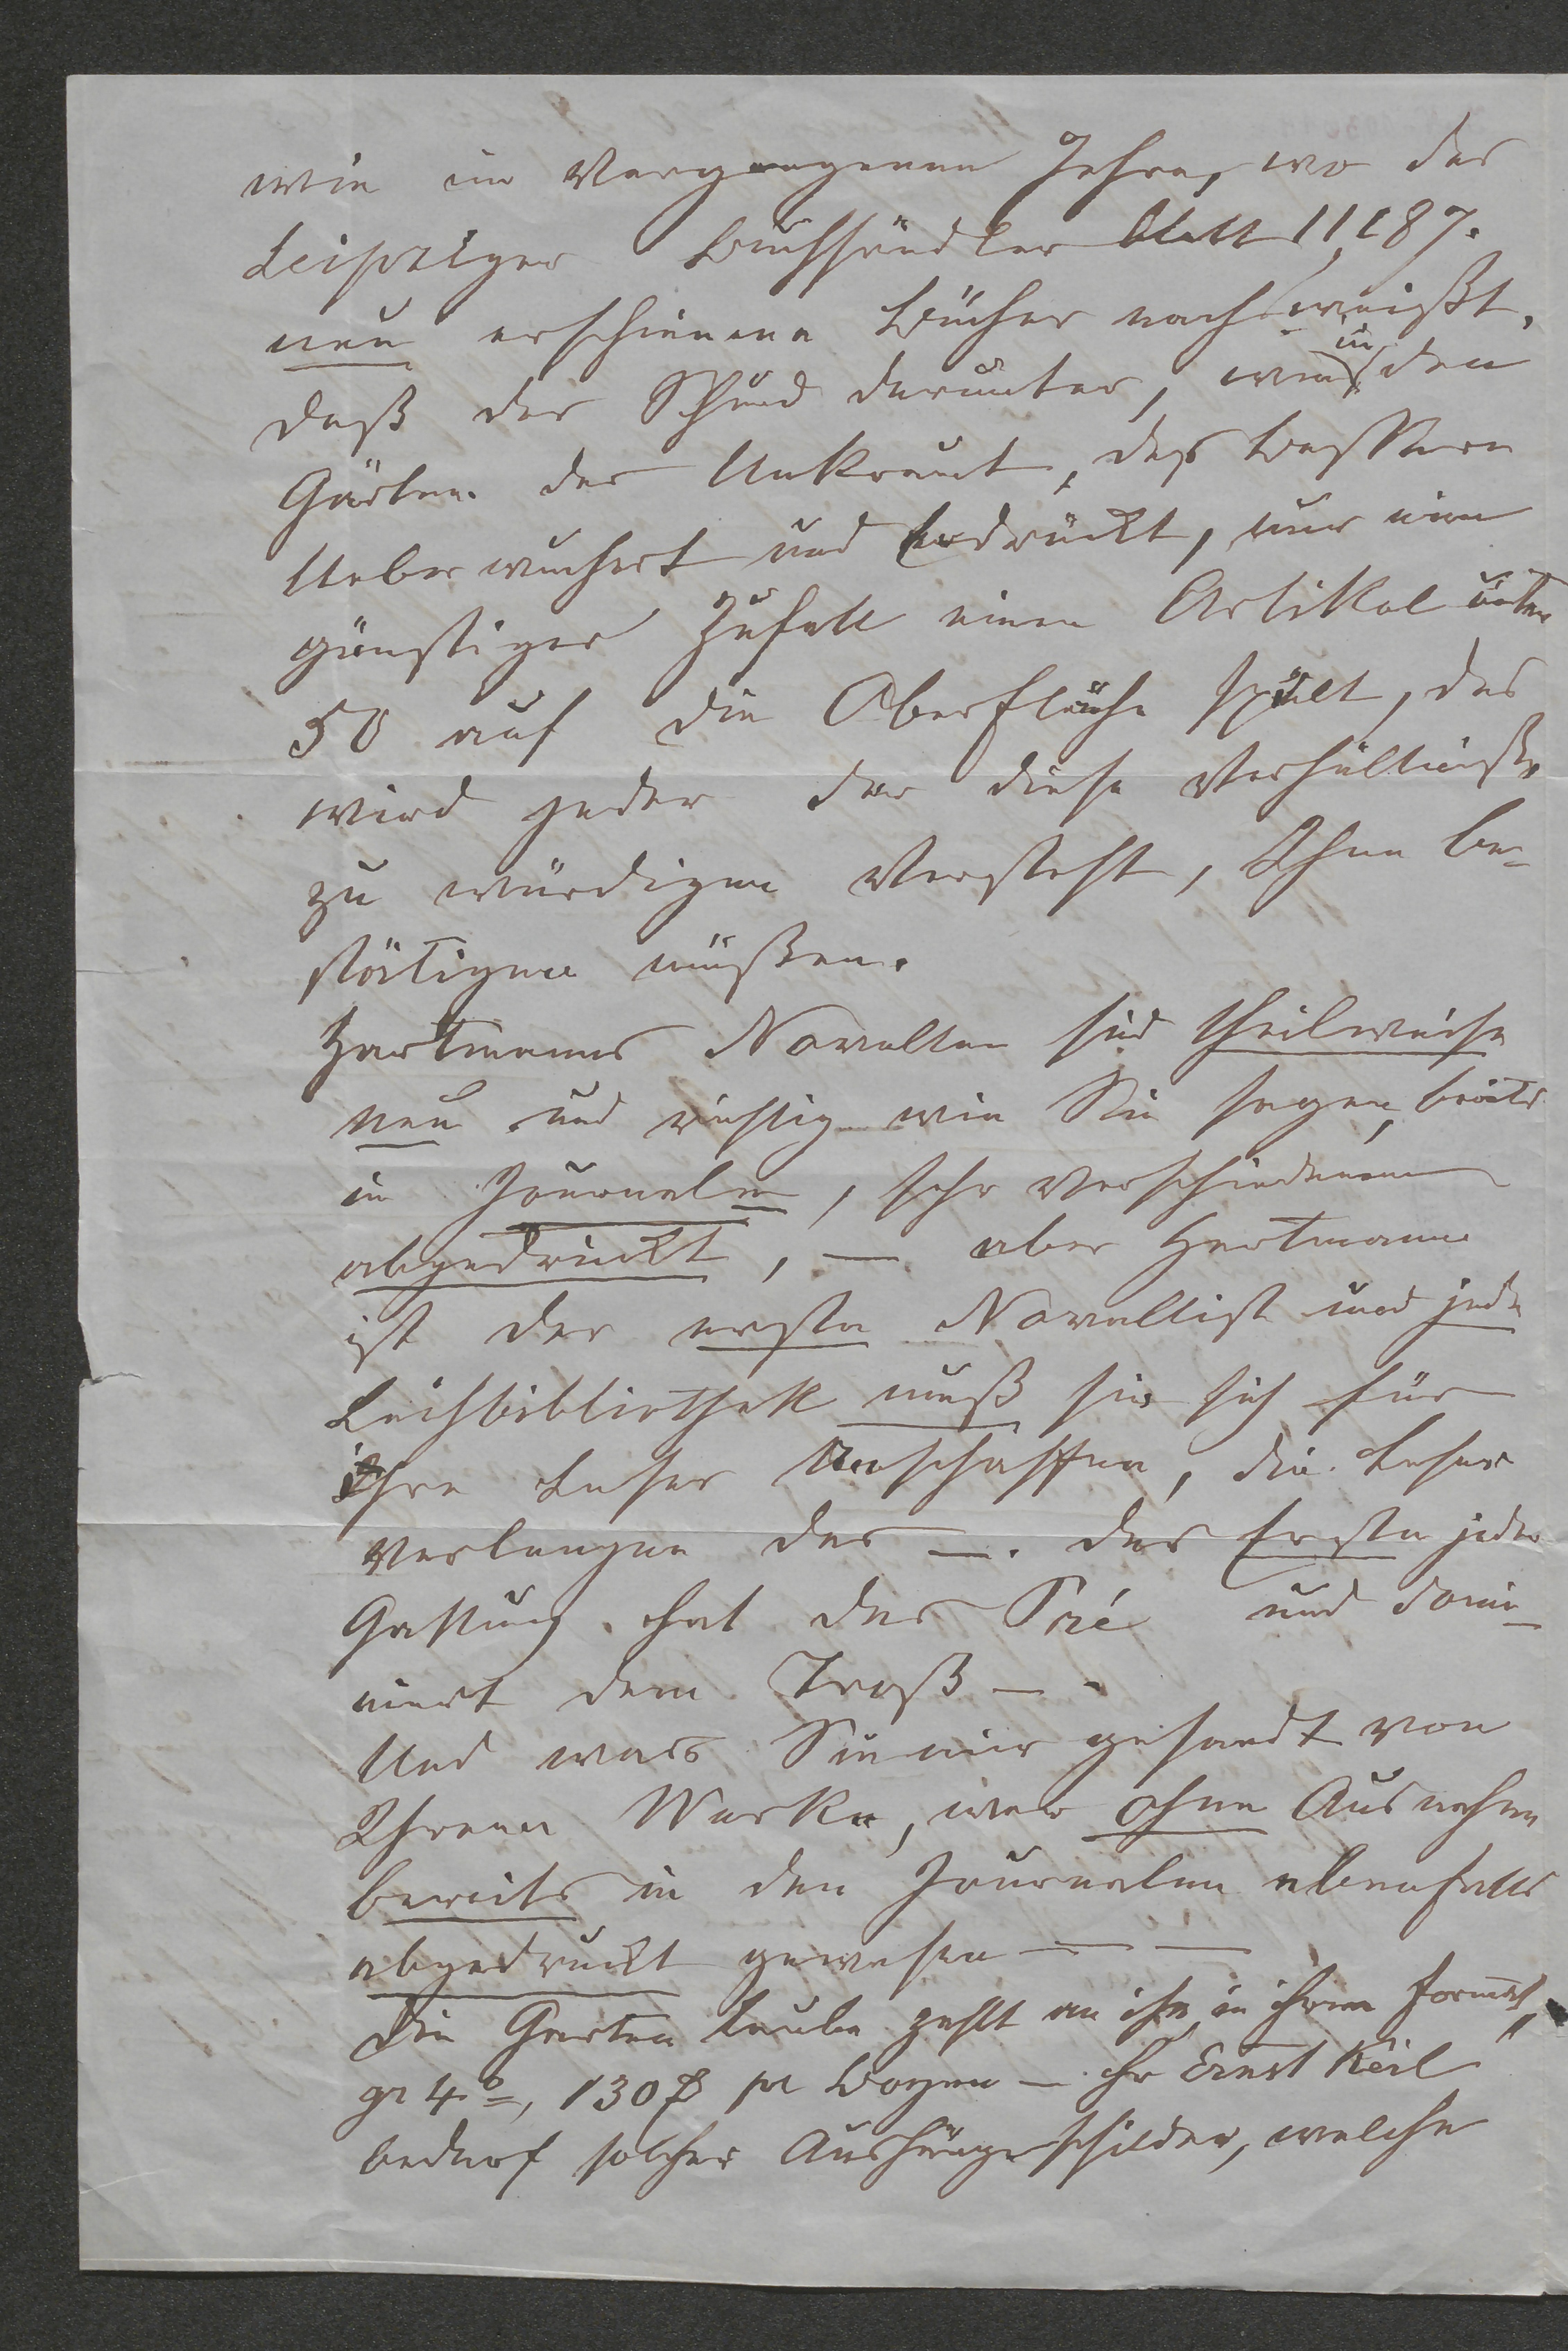 wie im vergangenen Jahre, wo das
Leipziger Buchhändler blatt 11,187.
neu erschienene Bücher nachweißt,
daß der Schund darunter, wie in den
Gärten das Unkraut, das Bessere
Ueberwuchert und Erdrückt, nur ein
günstiger Zufall einen Artikel unter
50 auf die Oberfläche spült, das
wird jeder der diese Verhältniße,
zu würdigen Versteht, Ihnen be-
stätigen müßen.
Hartmanns Novellen sind theilweise
neu und richtig wie Sie sagen, bereits
in Journalen, sehr verschiedenen
abgedruckt, — aber Hartmann
ist der erste Novellist und jede
Leihbibliothek muß sie sich für
ihre Leser Anschaffen, die Leser
verlangen das —. der Erste jeder
Gattung hat das Pré und domi-
niert dem Troß — -
Und was Sie mir gesandt von
Ihrem Werke, war ohne Ausnahme
bereits in den Journalen ebenfalls
abgedruckt gewesen — —
Die Garten laube zahlt an ihn, in ihrem Format,
gr 4°, 130 pr Bogen — Hr Ernst Keil
bedarf solcher Aushängeschilder, welche